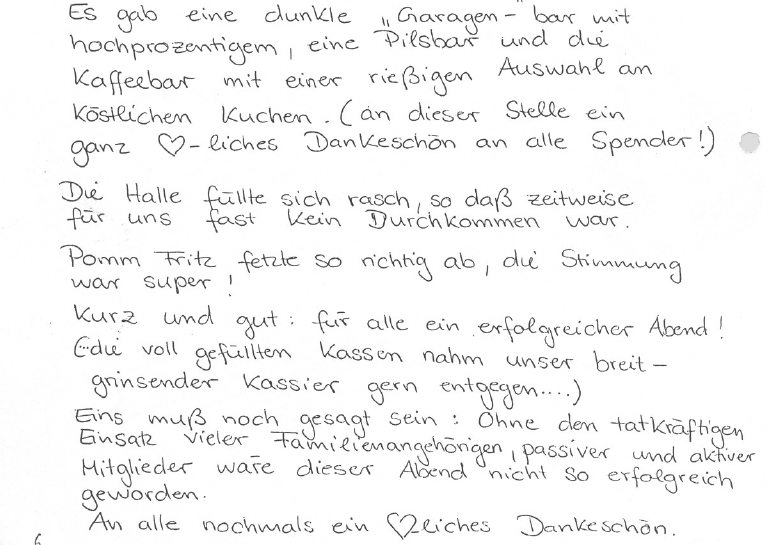 Es gab eine dunkle „Garagen-" bar mit
hochprozentigem, eine Pilsbar und die
Kaffeebar mit einer rießigen Auswahl an
köstlichen Kuchen. (an dieser Stelle ein
ganz ♡-liches Dankeschön an alle Spender!)
Die Halle füllte sich rasch, so daß zeitweise
für uns fast kein Durchkommen war.
Pomm Fritz fetzte so richtig ab, die Stimmung
war super!
Kurz und gut: für alle ein erfolgreicher Abend!
(die voll gefüllten Kassen nahm unser breit-
grinsender Kassier gern entgegen....)
Eins muß noch gesagt sein: Ohne den tatkräftigen
Einsatz vieler Familienangehörigen, passiver und aktiver
Mitglieder wäre dieser Abend nicht so erfolgreich
geworden.
An alle nochmals ein ♡liches Dankeschön.